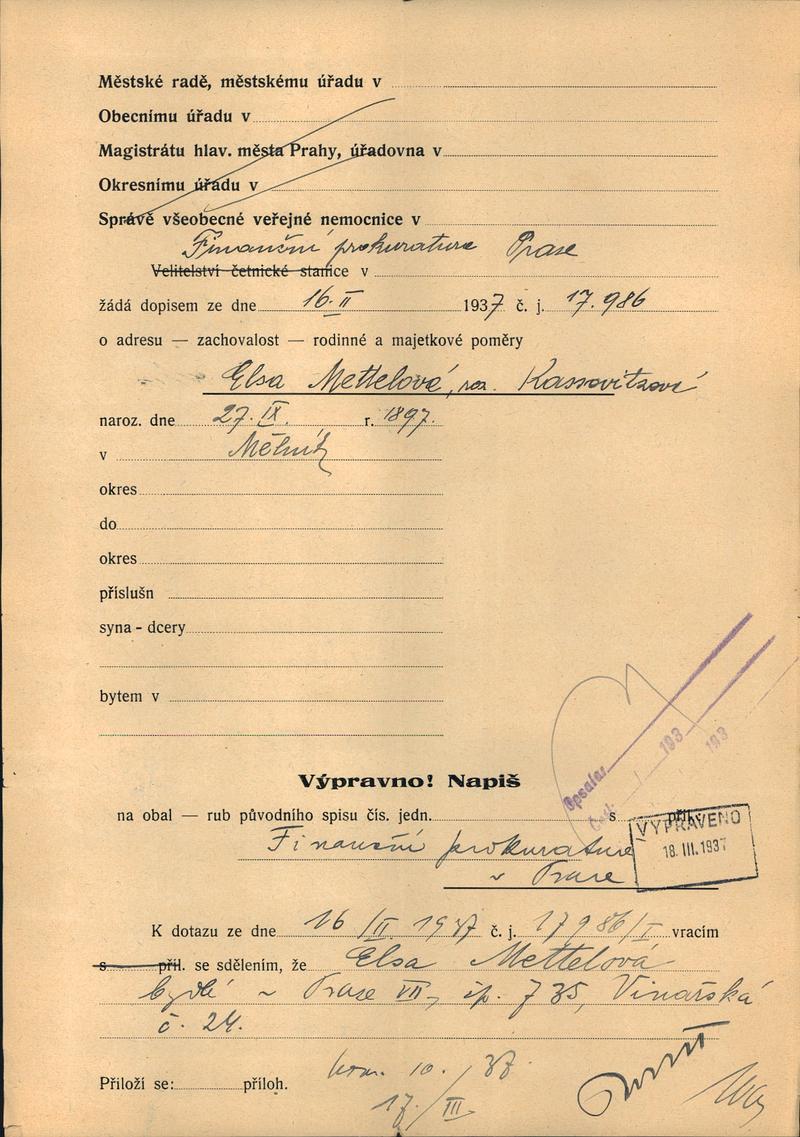 Městské radě, městskému úřadu v
Obecnímu úřadu v
Magistrátu hlav. města Prahy, úřadovna v
Okresnímu úřadu v
Správě všeobecné veřejné nemocnice v
Finanční prokuratura Praze
Velitelství četnické stanice v
žádá dopisem ze dne 16. II 1937 č. j. 17.986
o adresu — zachovalost — rodinné a majetkové poměry
Elsa Mettelová, roz. Kassovitzová
naroz. dne 27. IX. r. 1897.
v Mělník
okres
do
okres
příslušn
syna - dcery
bytem v
Opsala: 193
193
Výpravno! Napiš
na obal — rub původního spisu čís. jedn. s příl.
VYPRAVENO
18. III. 1937
Finanční prokuratuře
v Praze
K dotazu ze dne 16/II 1937 č. j. 17986/I vracím
s příl. se sdělením, že Elsa Mettelová
bydlí v Praze VII, čp. 735, Vinařská
č. 24.
Přiloží se: příloh. 10. / 37
17/III.